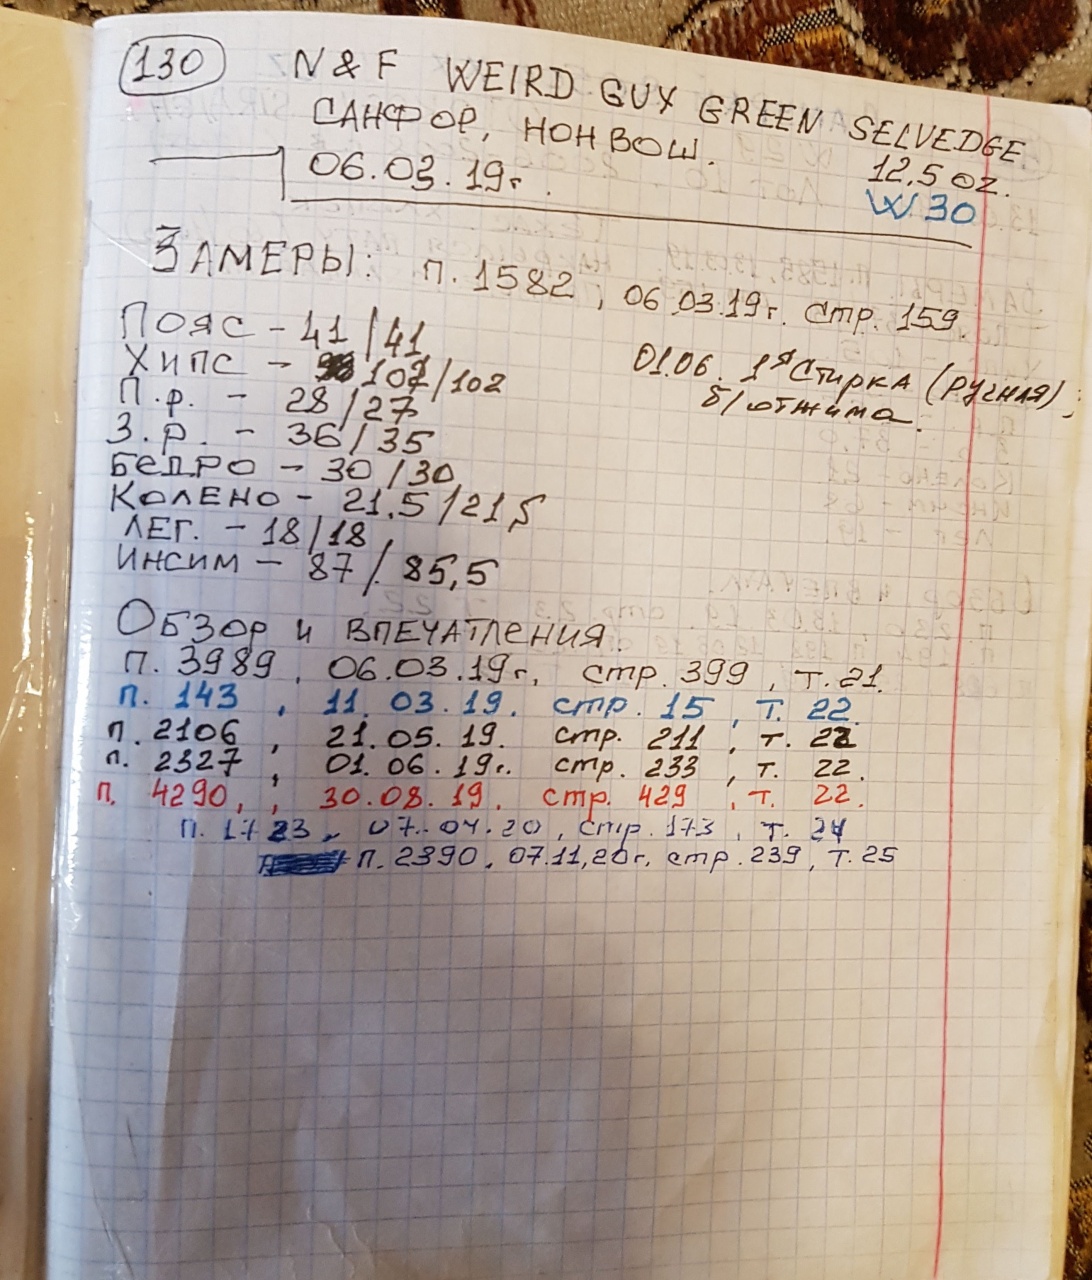 130 N & F WEIRD GUY GREEN SELVEDGE
САНФОР, НОНВОШ. 12.5 oz.
06.03.19г. W 30
ЗАМЕРЫ: п. 1582, 06.03.19г. стр. 159
ПОЯС - 41/41
ХИПС - 102/102 01.06. 1я Стирка (ручная),
П.р. - 28/27 б/отжима.
З.р. - 36/35
БЕДРО - 30/30
КОЛЕНО - 21.5/21,5
ЛЕГ. - 18/18
ИНСИМ - 87/85,5
ОБЗОР И ВПЕЧАТЛЕНИЯ
п. 3989, 06.03.19г, стр. 399, т.21.
п. 143, 11.03.19. стр. 15, т. 22.
п. 2106, 21.05.19. стр. 211, т. 22
п. 2327, 01.06.19г. стр. 233, т. 22.
п. 4290, , 30.08.19. стр. 429, т. 22.
п. 1723, 07.04.20, стр. 173, т. 24
п. 2390, 07.11,20г. стр. 239, т. 25